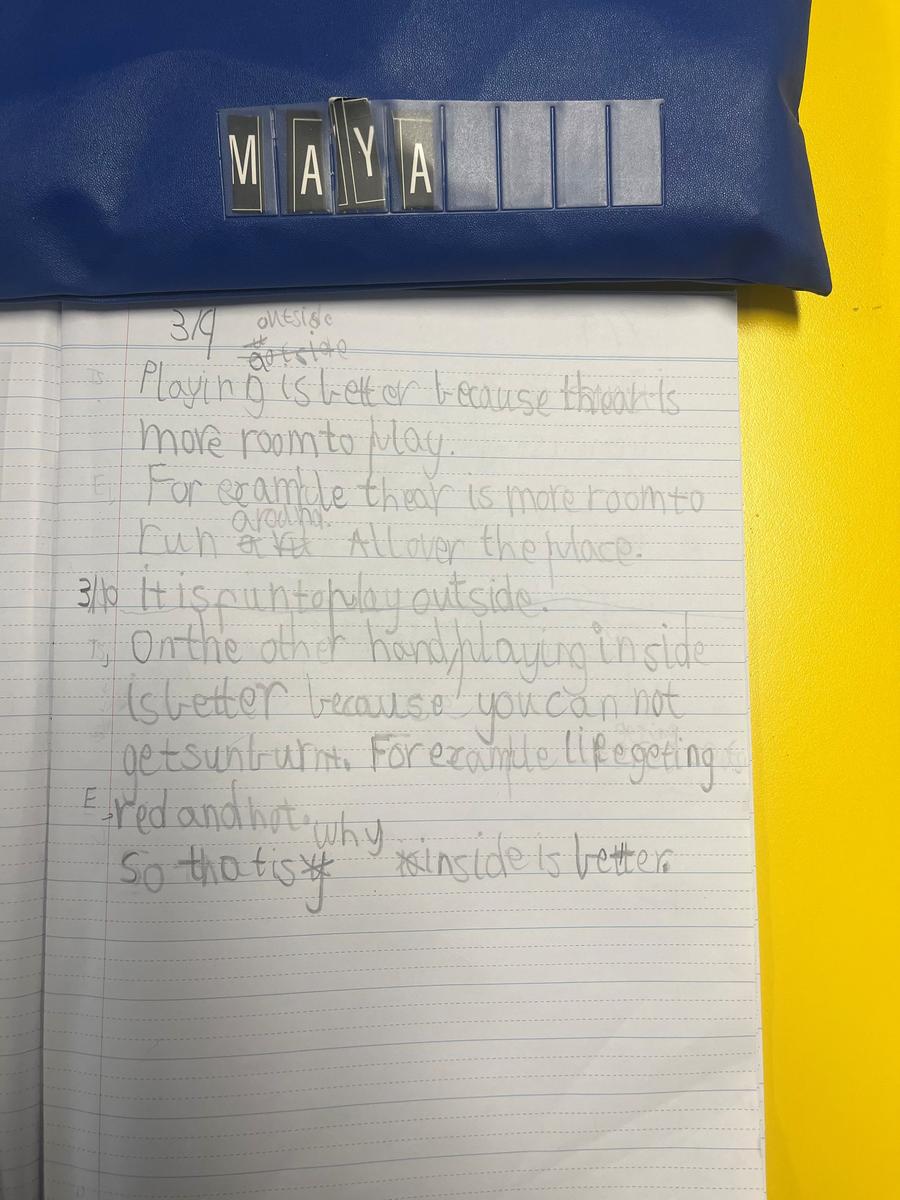 MAYA
3/9 outside
outside
Playing is better because thear is
more room to play.
For example thear is more room to
around.
run All over the place.
3/10 it is fun to play outside.
TS, On the other hand, playing inside
is better because you can not
get sunburnt. For example like geting
E, red and hot. why
So that is inside is better.